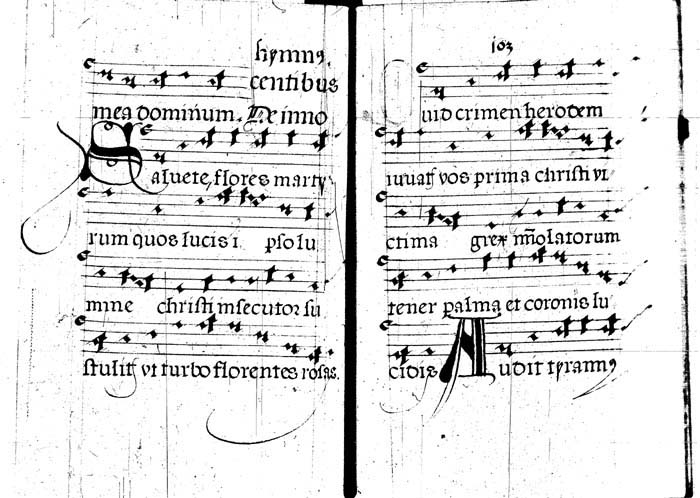 hymnꝯ.
centibus
mea dominum. De inno
Saluete flores marty
rum quos lucis i pso lu
mine christi insecutor su
stulit vt turbo florentes rosas.
103
uid crimen herodem
iuuat vos prima christi vi
ctima grex immolatorum
tener palma et coronis lu
cidis Audit tyrannꝯ